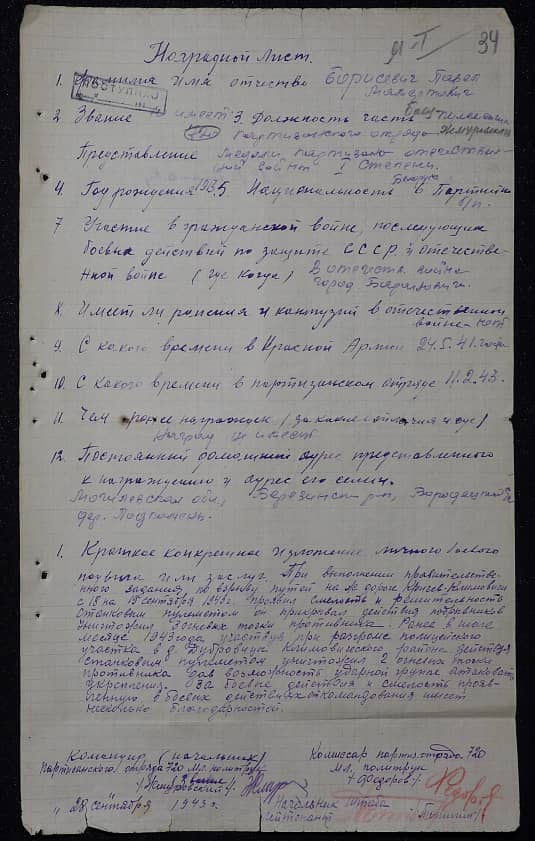 34
Наградной Лист.
1. Фамилия Имя отчество Борисевич Павел
Макарович
2 Звание не имеет 3. Должность часть Боец
партизанского отряда
Представление медали партизану отечествен-
ной войны I степени.
4. Год рождения Национальность 6 Партийн
Белорус б/п.
7 Участие в гражданской войне, последующих
боевых действий по защите С С С Р и отечестве-
нной войне (где когда) В отечеств. война
город Барановичи.
8. Имеет ли ранения и контузий в отечественной
войне - нет
9. С какого времени в Красной Армии 24.5.41. года
10. С какого времени в партизанском отряде 11.2.43.
11. Чем ранее награжден (за какие отличия и где)
Наград не имеет
12. Постоянный домашний адрес представленного
к награждению и адрес его семьи.
Могилевская обл, Березинск р-н,
дер.
1. Краткое конкретное изложение личного боевого
подвига или заслуг. При выполнении правительстве-
нного задания по взрыву путей на жд дороге Кричев-Климовичи
с 18 на 19 сентября 1943г. проявил смелость и решительность
Станковым пулеметом он прикрывал действия подрывников
уничтожил 3 огневых точки противника. Ранее в июле
месяце 1943 года участвуя при разгроме полицейского
участка в д. Климовического района действуя
станковым пулеметом уничтожил 2 огневые точки
противника дав возможность ударной группе атаковать
укрепления. За боевые действия и смелость прояв-
ленную в боевых действиях от командования имеет
несколько благодарностей.
Командир (начальник) Комиссар партиз. отряда 720
Партизанского отряда 720 мл. политрук мл. политрук
/ Федоров /.
Начальник штаба
" 28 сентября 1943 г. лейтенант